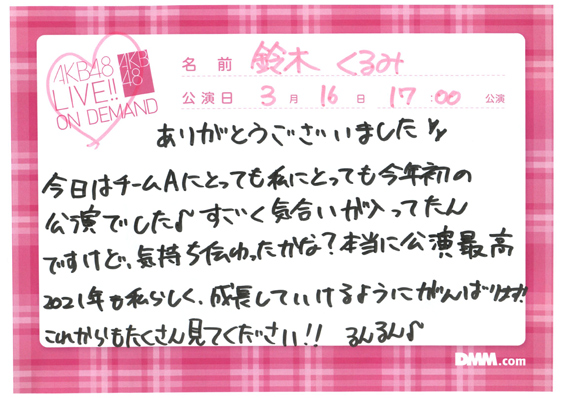 AKB48
LIVE!!
ON DEMAND
AKB
48
名前 鈴木 くるみ
公演日 3月16日 17:00 公演
ありがとうございました
今日はチームAにとっても私にとっても今年初の
公演でした♪すごく気合いが入ってたん
ですけど、気持ち伝わったかな?本当に公演最高
2021年も私らしく、成長していけるようにがんばります!!
これからもたくさん見てください!! るんるん♪
DMM.com